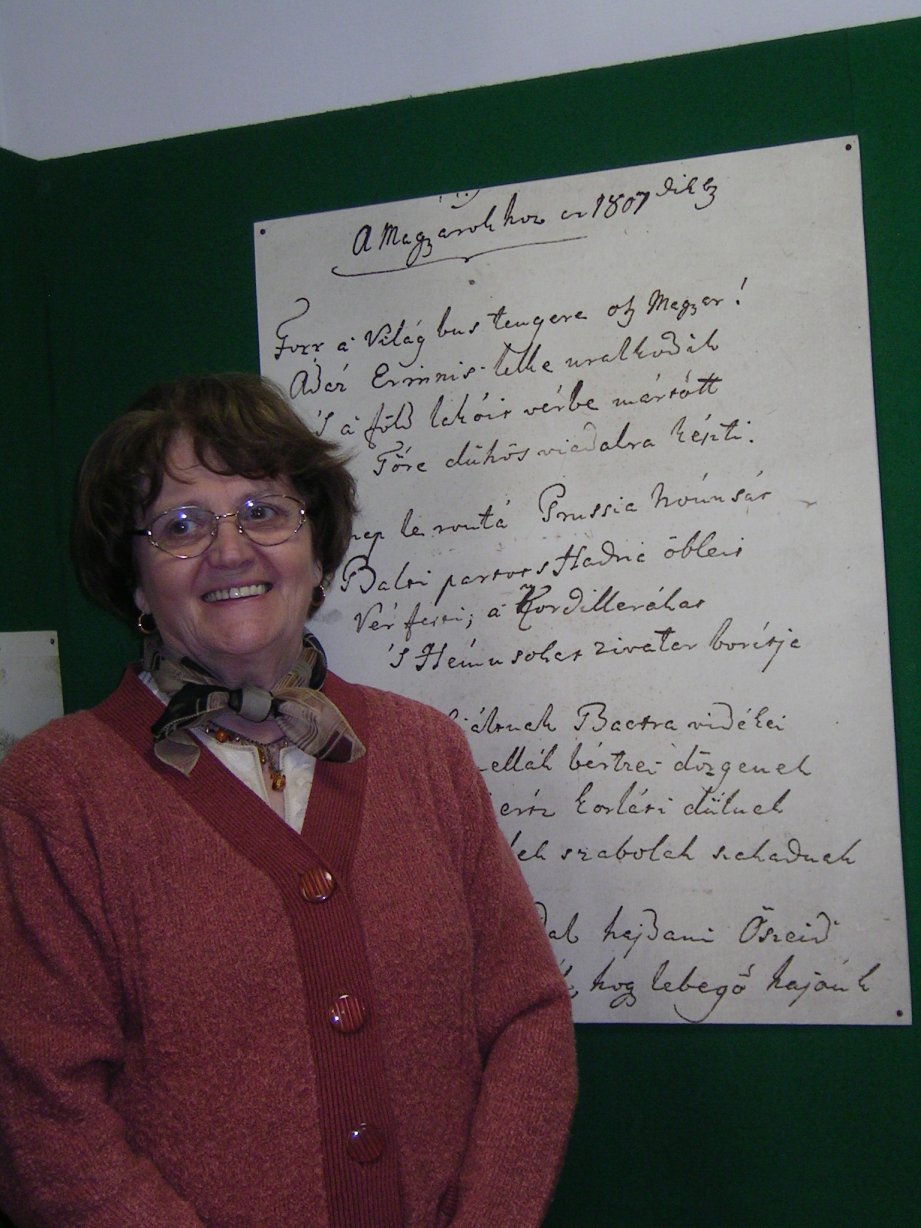 A Magyarokhoz az 1807dikbƷ
Forr a' Világ bus tengere oh Magyar!
Ádáz Erinnis lelke uralkodik
'S a' föld lakóit vérbe mártott
Tőre dühös viadalra készti.
nap le rontá Prussia thrónusát
Balti partot s Hadria öbleit
Vér festi; a' Kordillerákat
'S Hémusokat zivatar borítja
Bactra vidékei
ellák bértzei dörgenek
korláti dűlnek
lek szabolák szakadnak
dal hajdani Őseid
hog lebegő hajónk